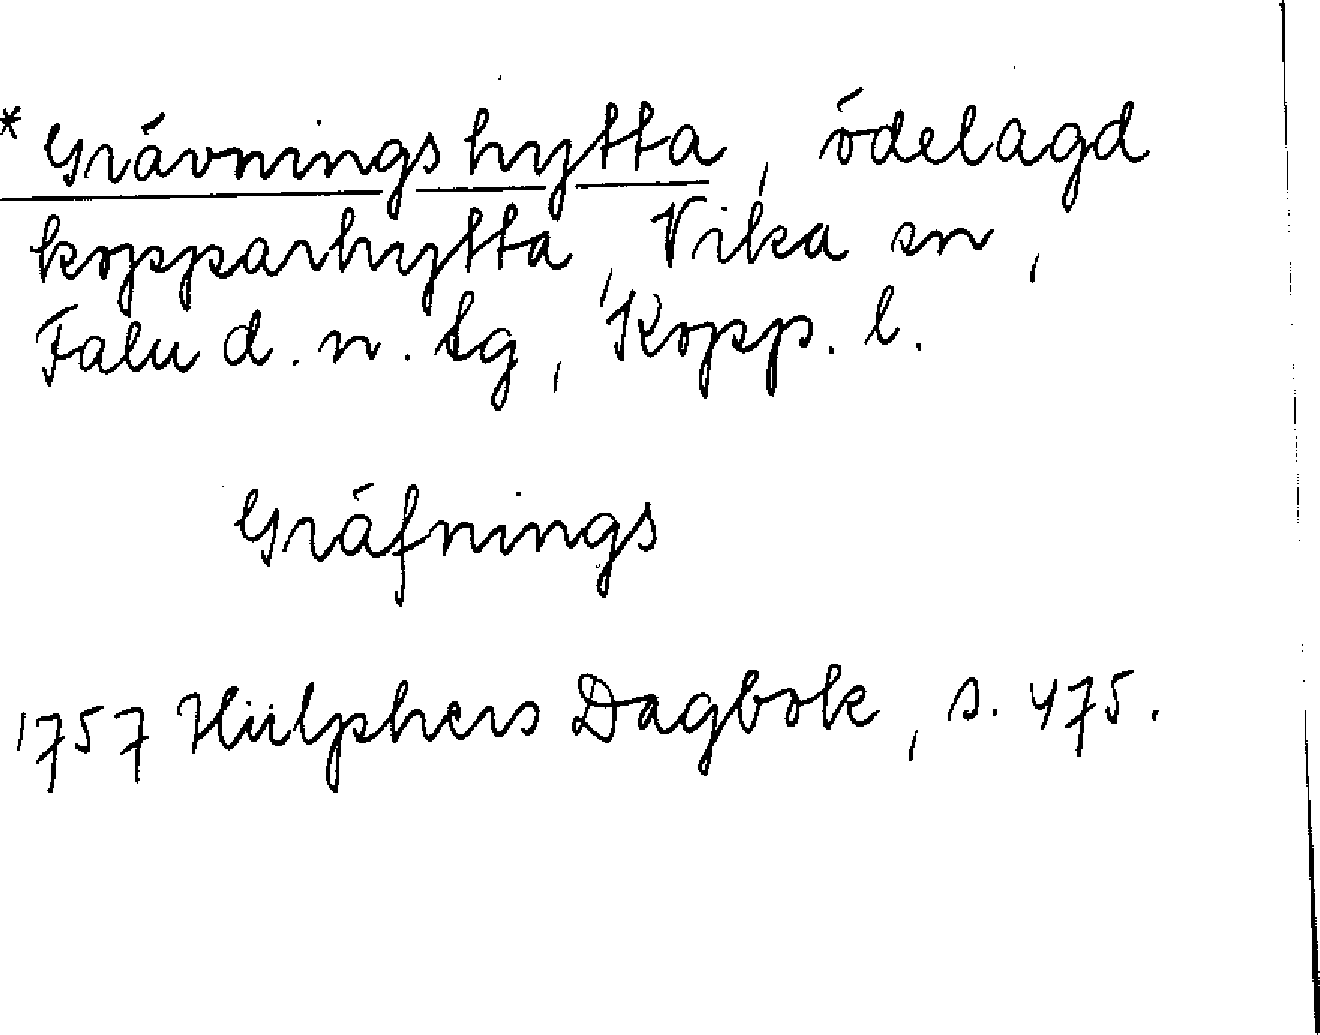 * Grävningshytta, ödelagd
kopparhytta, Vika sn,
Falu d.n. tg, Kopp. l.
Gräfnings
1757 Hülphers Dagbok, s. 475.